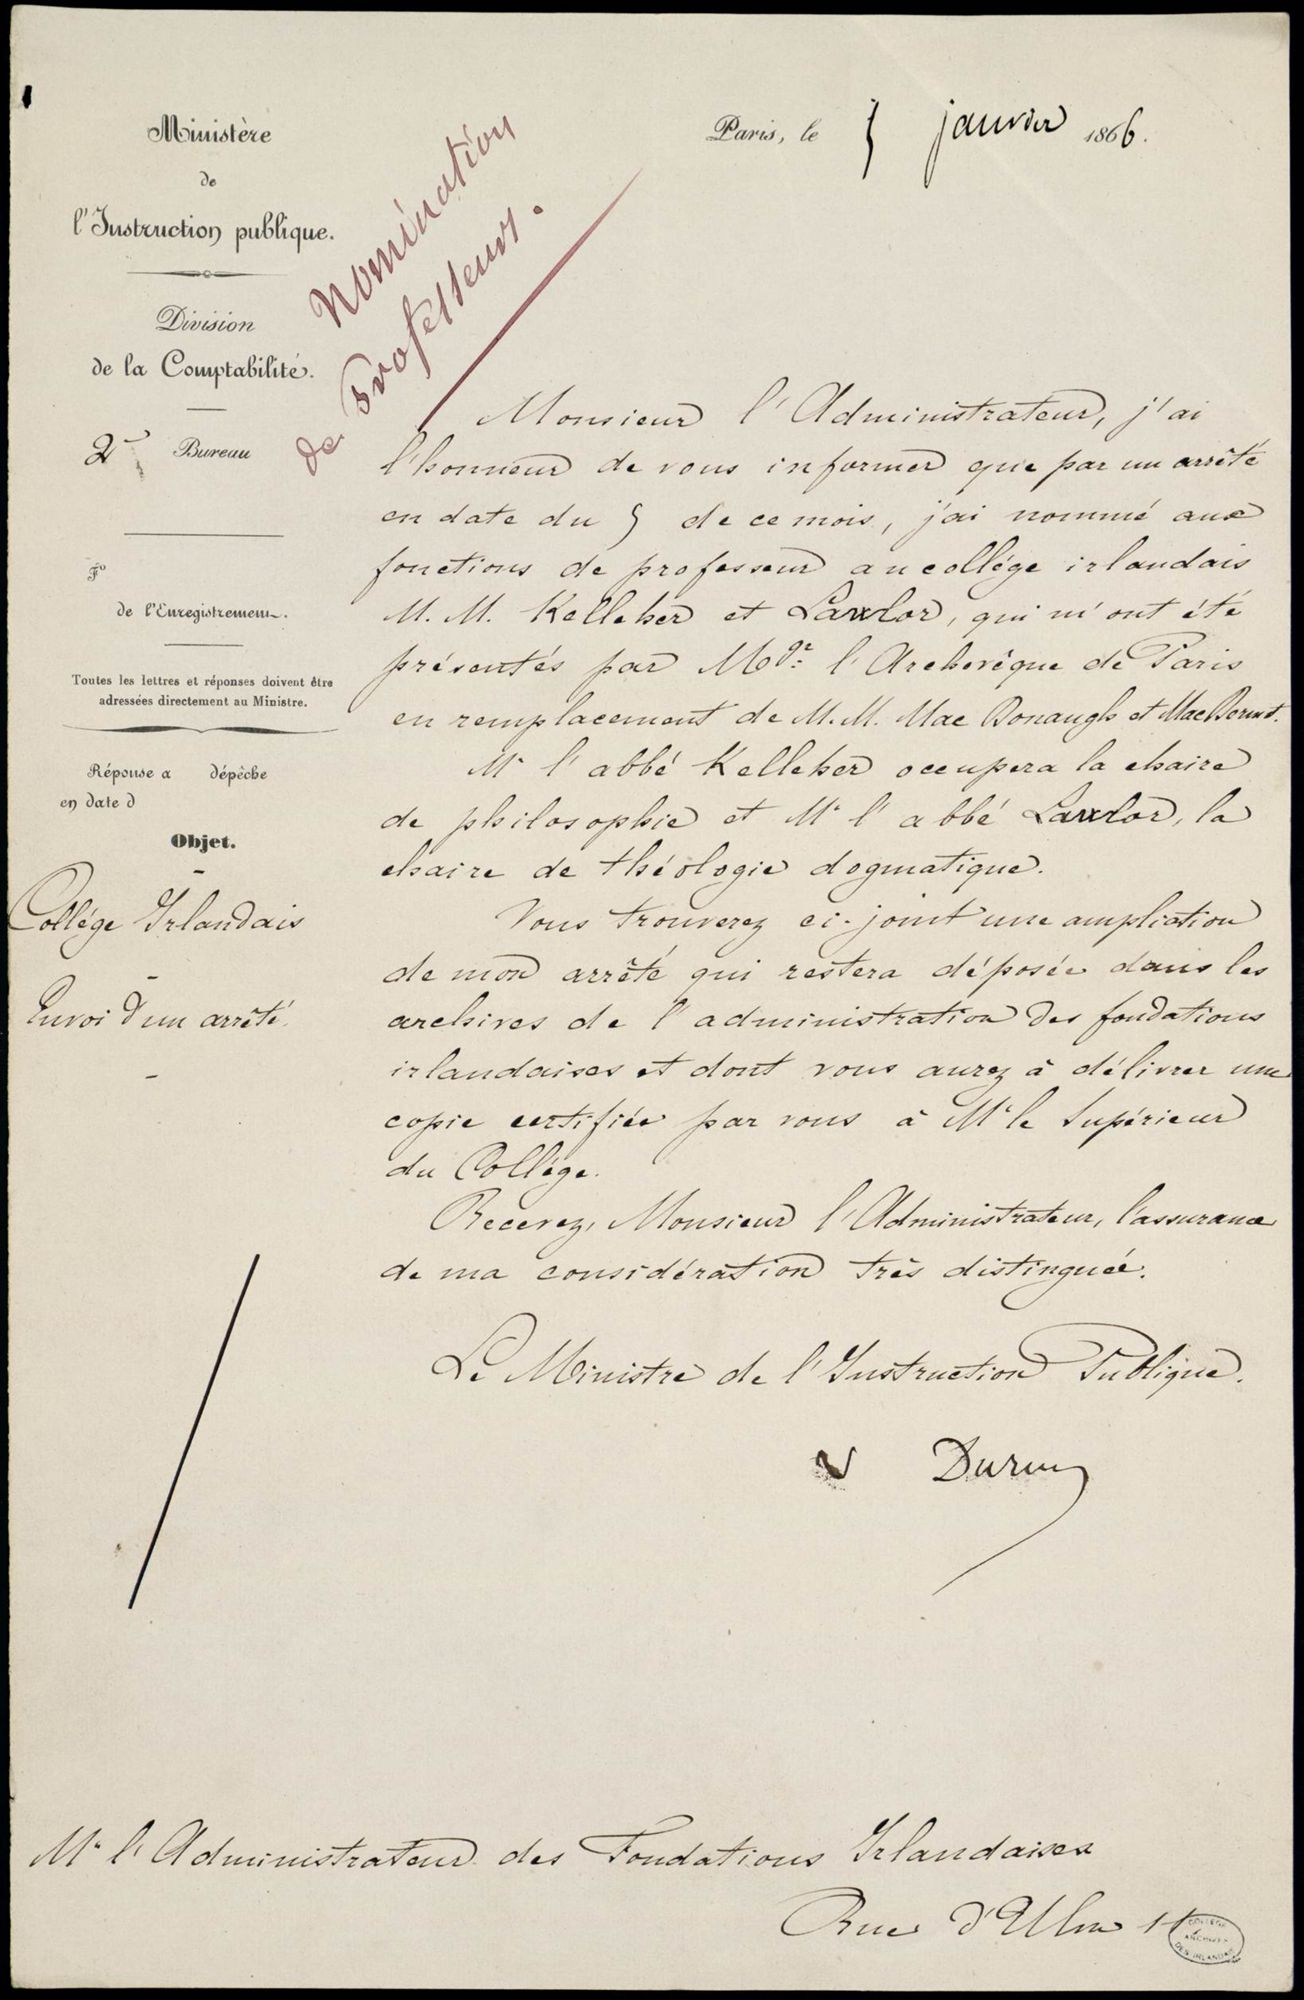 Ministère
de
l'Instruction publique.
Division
de la Comptabilité.
2e Bureau
Fo
de l'Enregistrement.
Toutes les lettres et réponses doivent être
adressées directement au Ministre.
Réponse a dépêche
en date d
Objet.
Collége Irlandais
Envoi d'un arrêté.
Nomination
de Professeurs.
Paris, le 5 janvier 1866.
Monsieur l'Administrateur, j'ai
l'honneur de vous informer que par un arrêté
en date du 5 de ce mois, j'ai nommé aux
fonctions de professeur au collége irlandais
M. M. Kelleher et Lawlor, qui m'ont été
présentés par Mgr. l'Archevêque de Paris
en remplacement de M. M. Mac Donaugh et Mac Dermot.
Mr l'abbé Kelleher occupera la chaire
de philosophie et Mr l'abbé Lawlor, la
chaire de théologie dogmatique.
Vous trouverez ci-joint une ampliation
de mon arrêté qui restera déposée dans les
archives de l'administration des fondations
irlandaises et dont vous aurez à délivrer une
copie certifiée par vous à Mr le Supérieur
du Collége.
Recevez, Monsieur l'Administrateur, l'assurance
de ma considération très distinguée.
Le Ministre de l'Instruction Publique.
V Duruy
Mr l'Administrateur des Fondations Irlandaises
Rue d'Ulm
COLLÈGE
ARCHIVES
DES IRLANDAIS